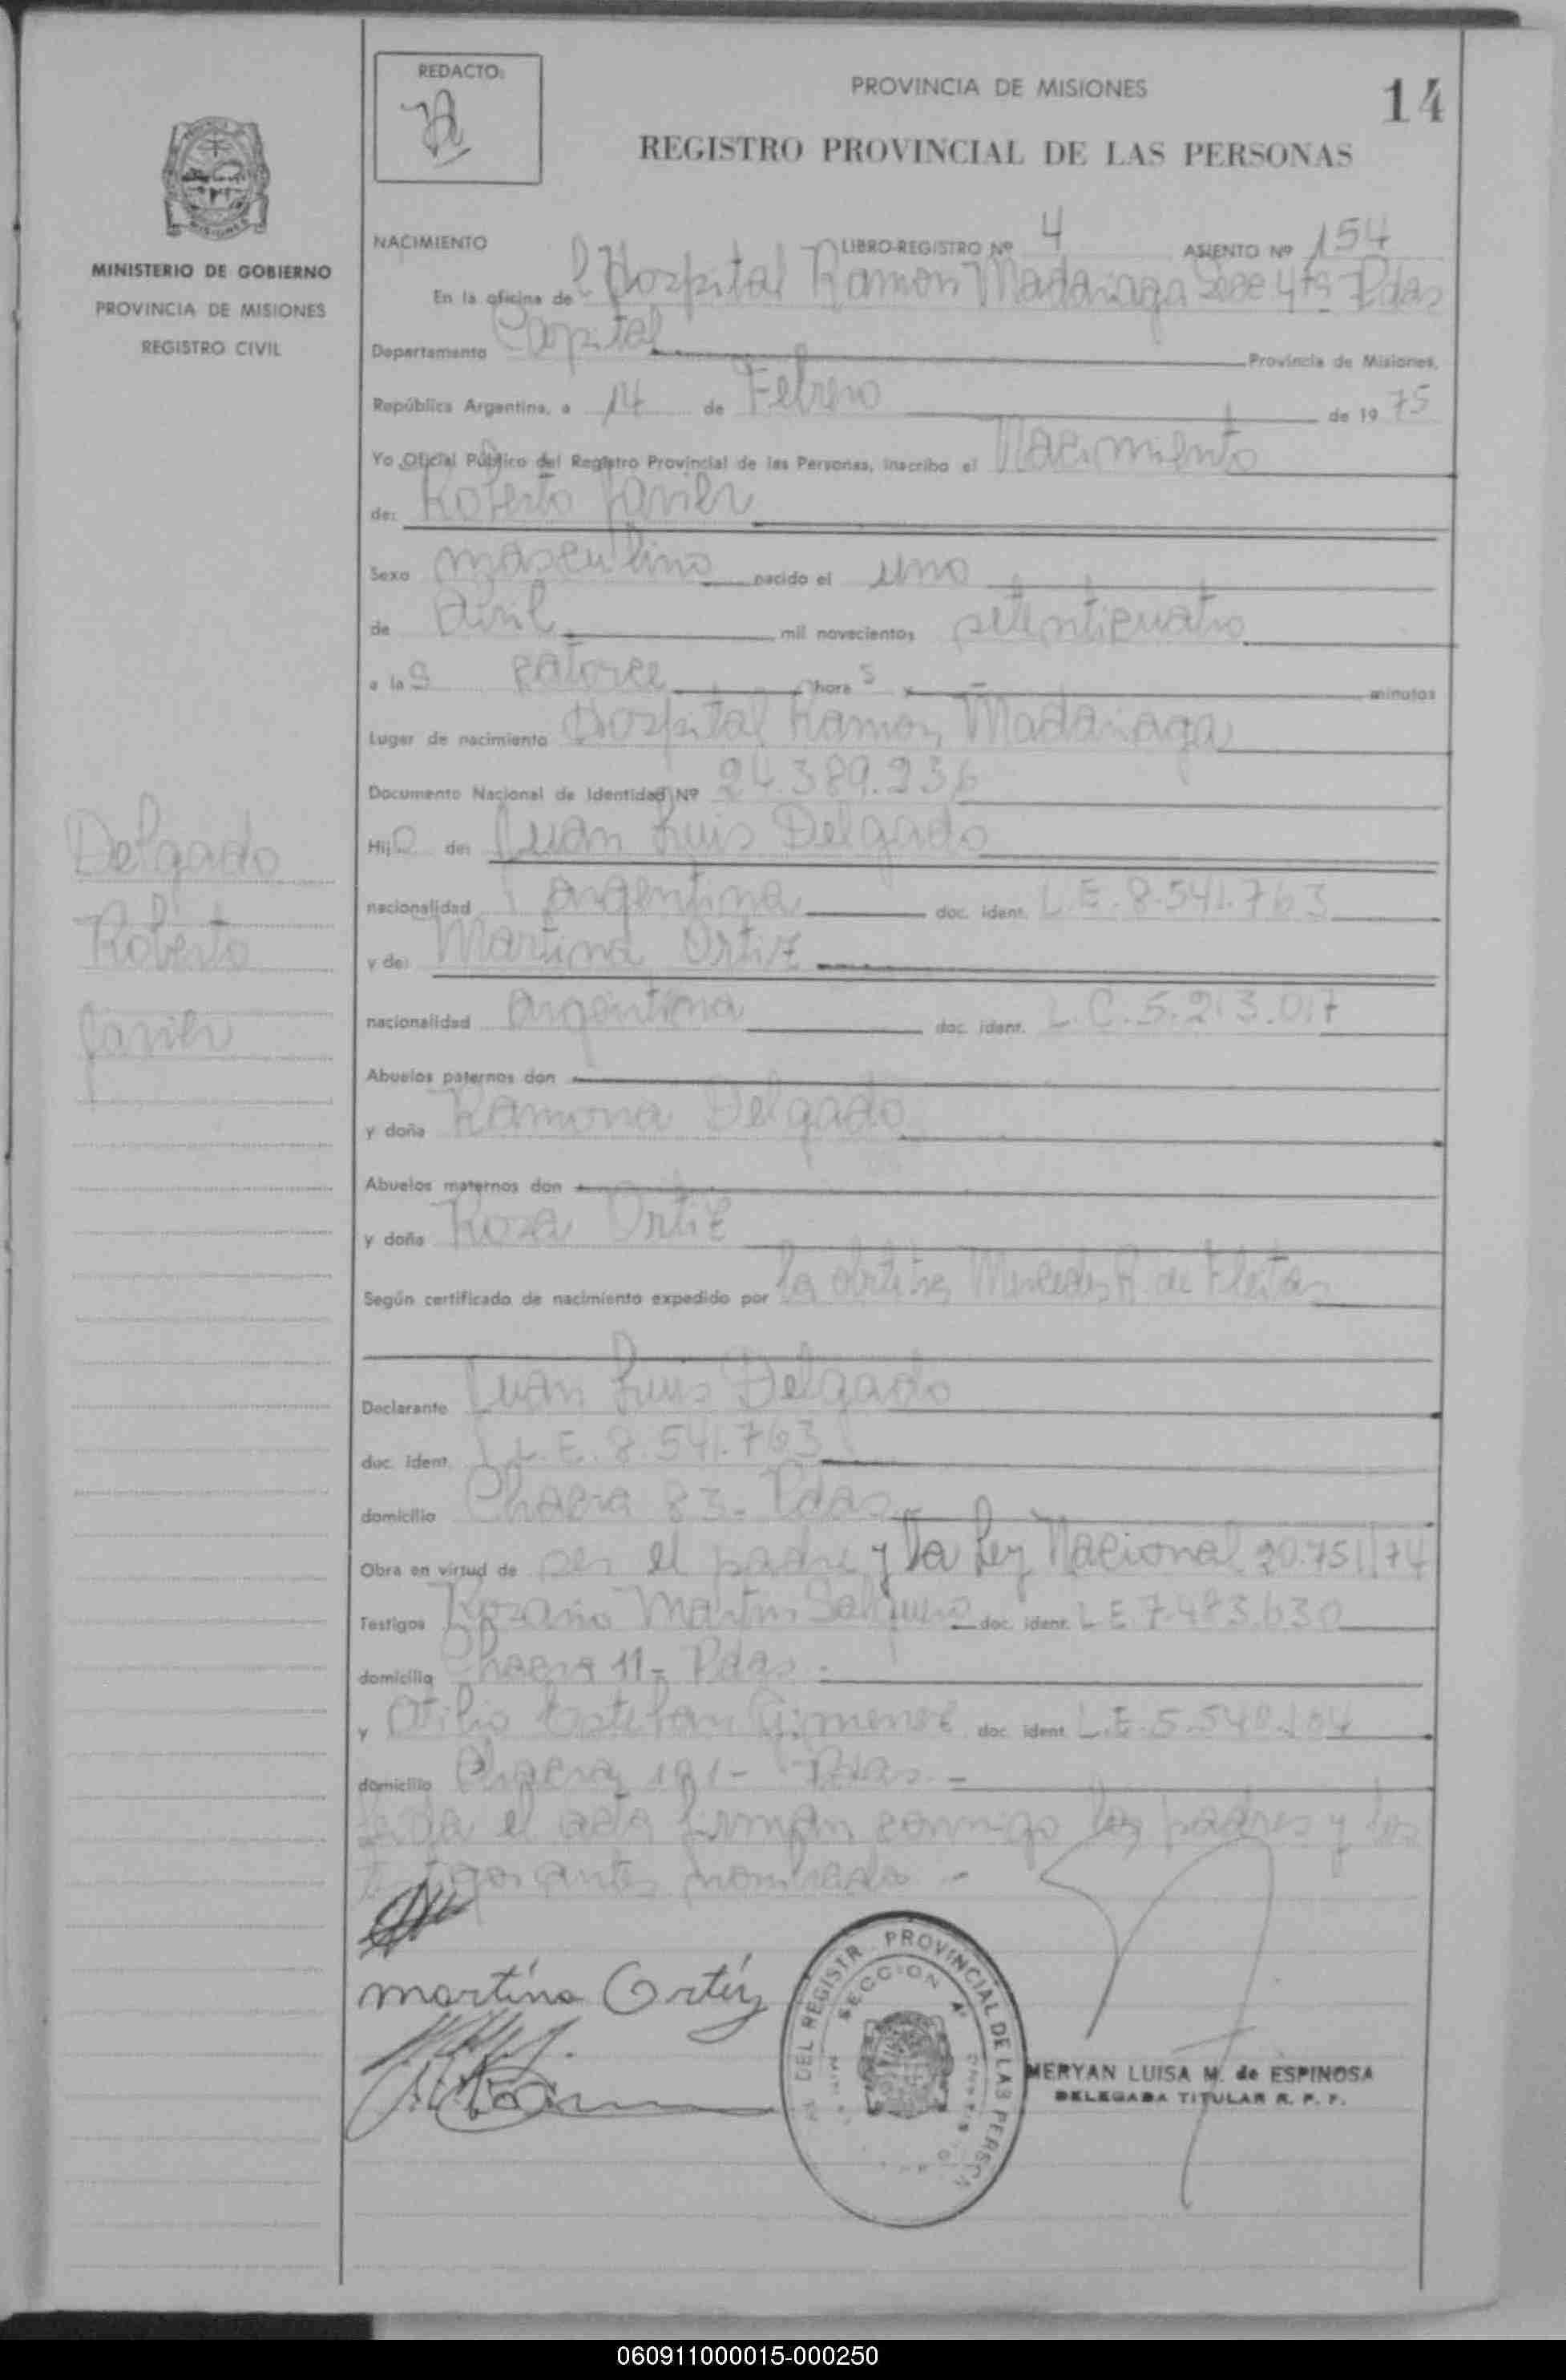 REDACTO:
PROVINCIA DE MISIONES
14
REGISTRO PROVINCIAL DE LAS PERSONAS
MISIONES
MINISTERIO DE GOBIERNO
PROVINCIA DE MISIONES
REGISTRO CIVIL
NACIMIENTO LIBRO-REGISTRO Nº 4 ASIENTO Nº 154
En la oficina del Hospital Ramón Madariaga Secc 4ta Pdas
Departamento Capital Provincia de Misiones,
República Argentina, a 14 de Febrero de 19 75
Yo Oficial Público del Registro Provincial de las Personas, inscribo el Nacimiento
de: Roberto Javier
Sexo masculino nacido el uno
de Abril mil novecientos setenticuatro
a las catorce horas y — minutos
Lugar de nacimiento Hospital Ramón Madariaga
Documento Nacional de Identidad Nº 24.389.236
Hijo de: Juan Luis Delgado
nacionalidad argentina doc. ident. L.E. 8.541.763
y de: Martina Ortiz
nacionalidad argentina doc. ident. L.C. 5.213.017
Abuelos paternos don
y doña Ramona Delgado
Abuelos maternos don
y doña Rosa Ortiz
Según certificado de nacimiento expedido por la Mercedes R. de Fleitas
Declarante Juan Luis Delgado
doc. ident. L.E. 8.541.763
domicilio Chacra 83- Pdas
Obra en virtud de ser el padre y la Ley Nacional 20.751/74
Testigos Martin doc. ident. L.E. 7.483.630
domicilio Chacra 11- Pdas -
y Otilio Esteban Gimenez doc. ident. L.E. 5.540.104
domicilio Chacra 191- Pdas -
Leida el acta firman conmigo los padres y los
testigos antes nombrados -
Delgado
Roberto
Javier
martina Ortiz
DEL REGISTR. PROVINCIAL DE LAS PERSON
SECCION 4ª
MERYAN LUISA M. de ESPINOSA
DELEGADA TITULAR R. P. P.
060911000015-000250